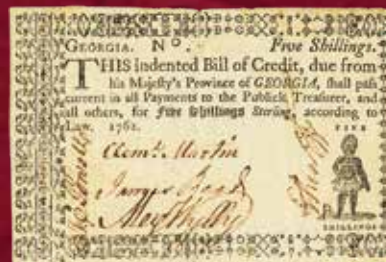 GEORGIA. No. Five Shillings.
THIS indented Bill of Credit, due from
his Majesty's Province of GEORGIA, shall pass
current in all Payments to the Publick Treasurer, and
all others, for Five Shillings Sterling, according to
Law. 1762.
FIVE
Clemt. Martin
James
SHILLINGS